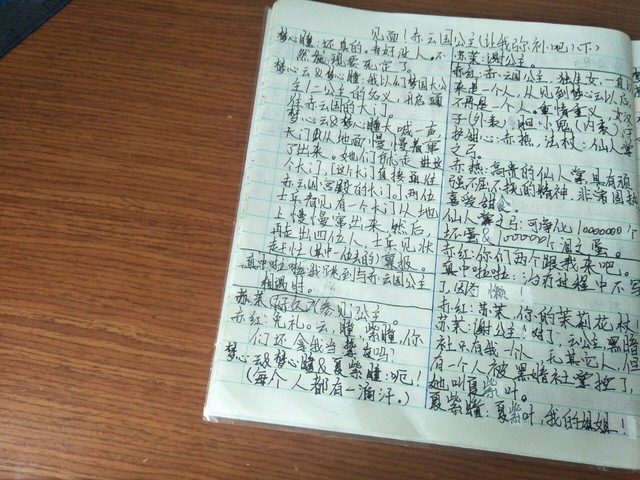 见面!赤云国公主(让我弥补吧)(下)
梦心瞳:还真的。幸好没人。不
然被现要死定了。
梦心云&梦心瞳:我以们梦国大公
主/二公主的名义,开启通
往赤云国的大门。
梦心云&梦心瞳大喊一声
大门由从地面慢慢
了出来。她们就走进
个大门,[这个门直接通往
赤云国宫殿的大门]。两位
士兵看见有一个大门从地
上慢慢窜出来,然后,
再走出四位人,士兵见状
赶才往(其中一位去的)汇报。
真中啦啦啦我来到与赤云国公主
相遇时。
赤茉(参见)公主
赤红:免礼。云,瞳,紫瞳,你
们还拿我当朋友吗?
梦心云&梦心瞳&夏紫瞳:呃!
(每个人都有一滴汗。)
苏茉:谢公主。
赤红:赤云国公主,独生女,一直
来是一个人,从见到梦心云以后
不再是一个人。重情重义,女汉
子(外表)胆小鬼(内表)守
护甜心:赤热,法杖:仙人掌
之弓。
赤热:高贵的仙人掌,具有顽
强不屈不挠的精神,非常固执
喜爱甜食。
仙人掌之弓:可净化10000000个
坏蛋&1000000个泪之蛋。
赤红:你们两个跟我来吧。
真中啦啦::治疗过程中不写
了,因为懒!
赤红:苏茉,你的茉莉花杖
苏茉:谢公主!对了,云公主,黑暗
社只有我一个人,无其它人,但
有一个人被黑暗社掌控了,
她叫夏紫叶。
夏紫瞳:夏紫叶,我的姐姐!